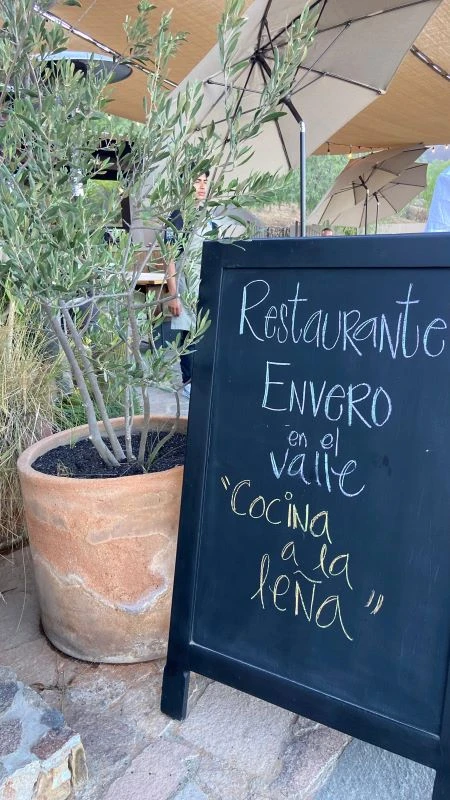 Restaurante
ENVERO
en el
valle
"Cocina
a la
leÑa"